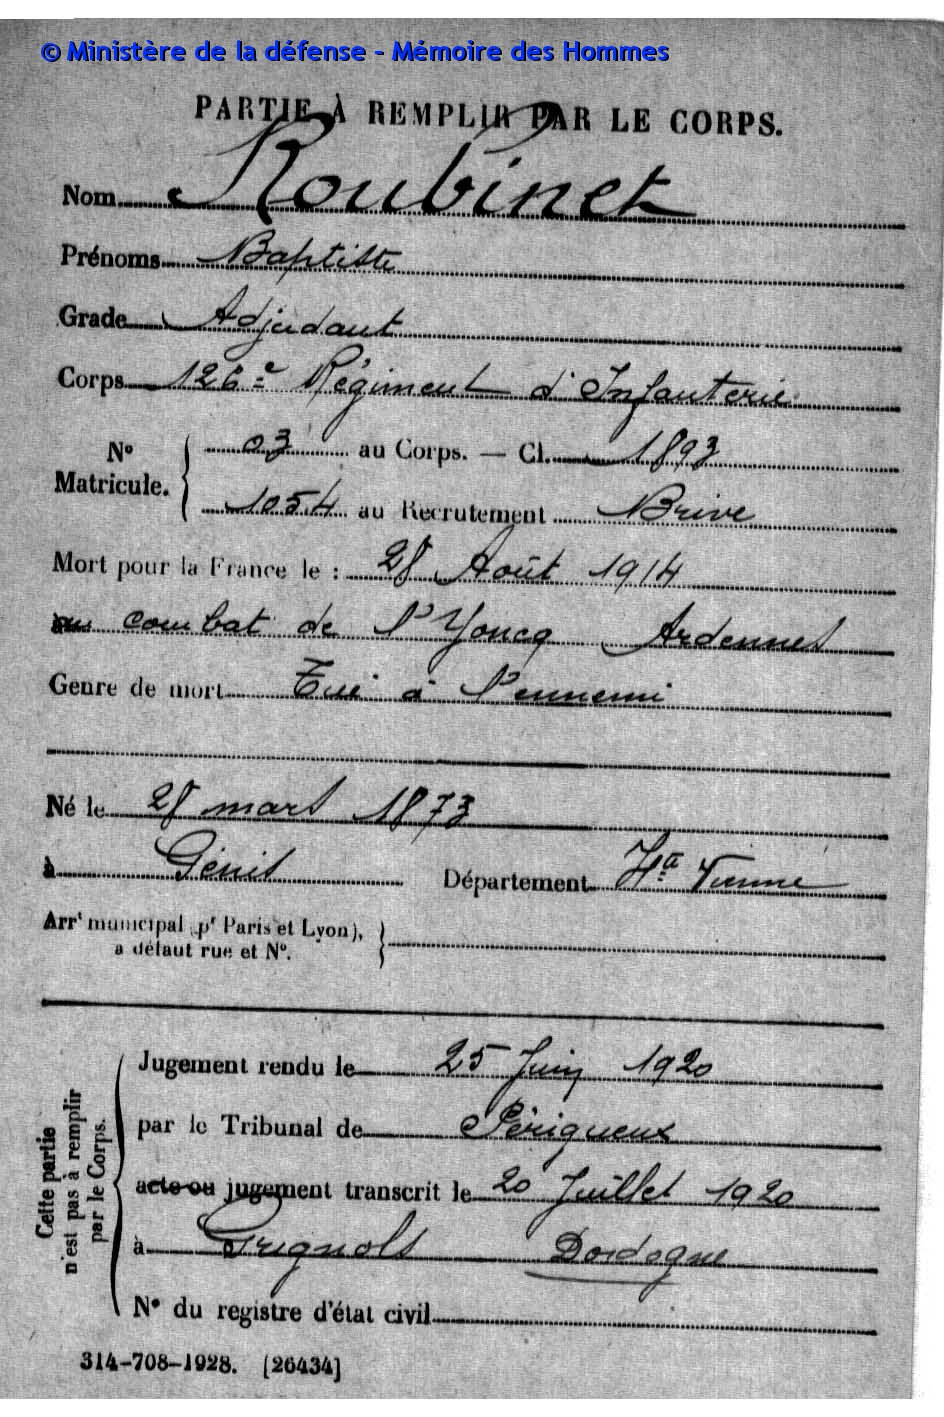 © Ministère de la défense - Mémoire des Hommes
PARTIE À REMPLIR PAR LE CORPS.
Nom Roubinet
Prénoms Baptiste
Grade Adjudant
Corps 126e Régiment d'Infanterie
N° Matricule. { 03 au Corps. — Cl. 1893
1054 au Recrutement Brive
Mort pour la France le : 28 Août 1914
au combat de l'Yoncq Ardennes
Genre de mort Tué à l'ennemi
Né le 28 mars 1873
à Génis Département Hte Vienne
Arrt municipal (pr Paris et Lyon),
à défaut rue et N°.
Cette partie n'est pas à remplir par le Corps.
Jugement rendu le 25 Juin 1920
par le Tribunal de Périgueux
acte ou jugement transcrit le 20 Juillet 1920
à Grignols Dordogne
N° du registre d'état civil
314-708-1928. [26434]